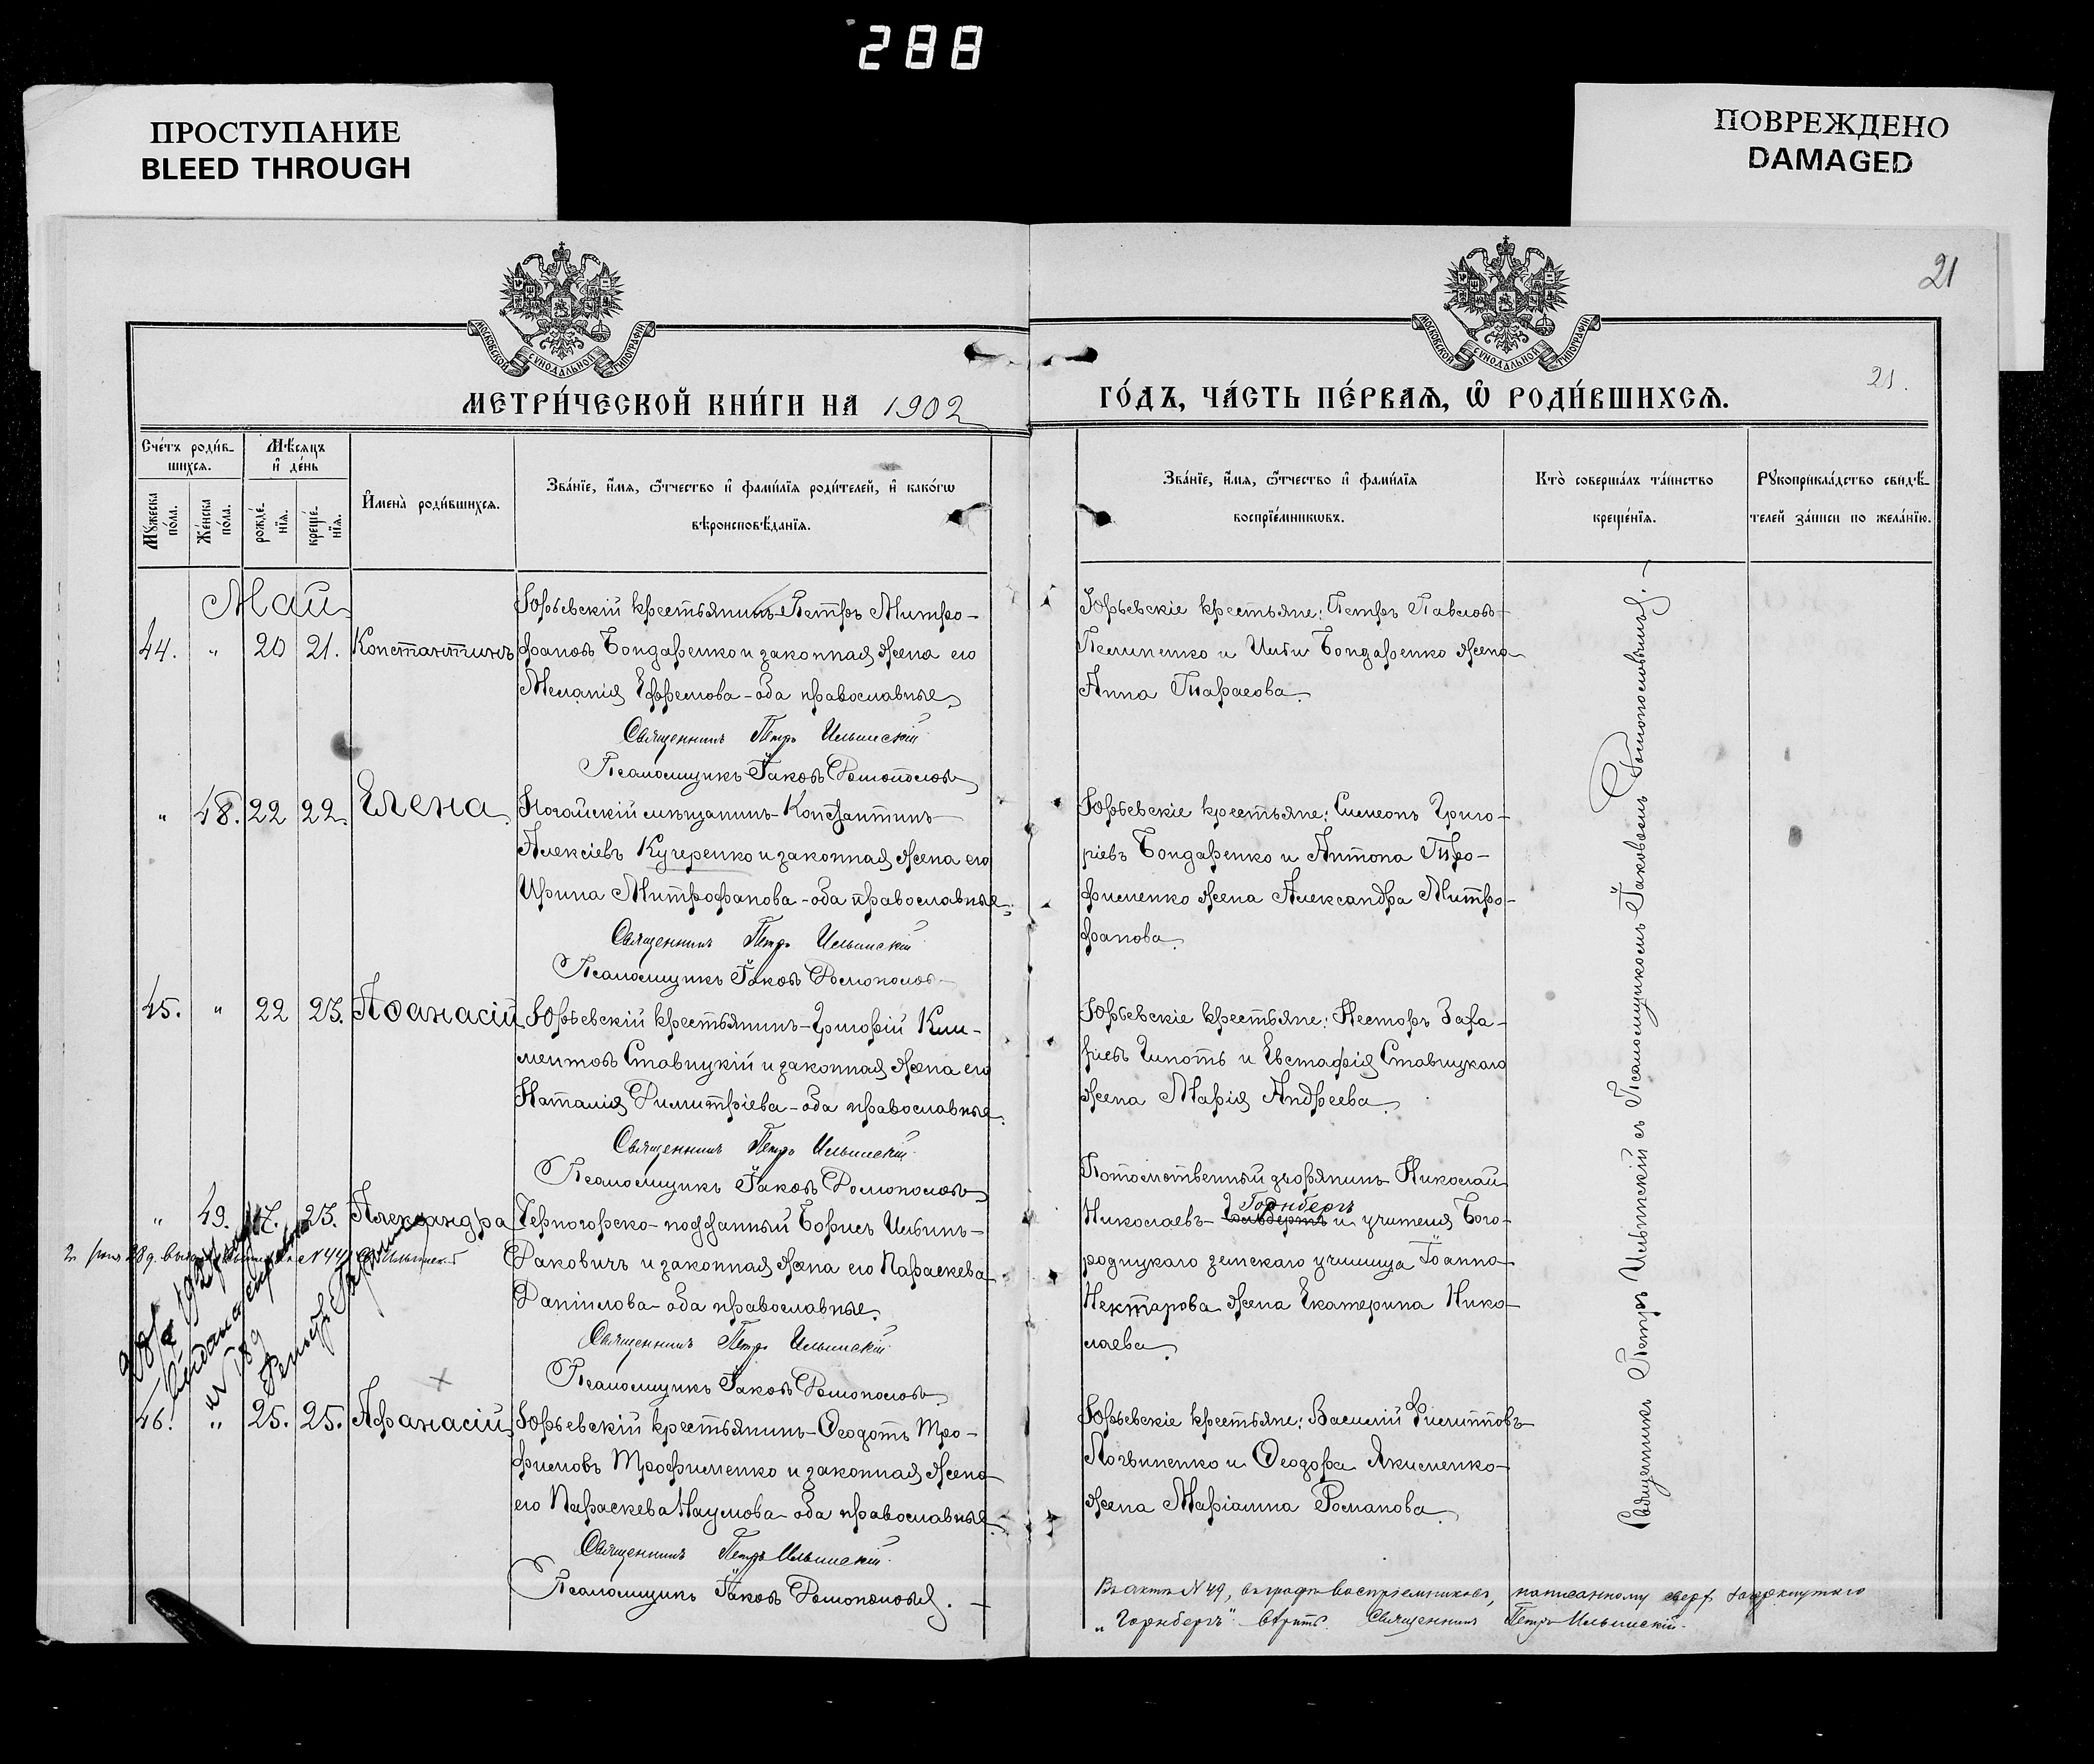 288
ПРОСТУПАНИЕ
BLEED THROUGH
ПОВРЕЖДЕНО
DAMAGED
21
МОСКОВСКОЙ СѴНОДАЛЬНОЙ ТИПОГРАФІИ
МОСКОВСКОЙ СѴНОДАЛЬНОЙ ТИПОГРАФІИ
21.
МЕТРИ́ЧЕСКОЙ КНИ́ГИ НА 1902
ГО́ДЪ, ЧА́СТЬ ПЕ́РВАѦ, Ѡ҆ РОДИ́ВШИХСѦ.
Сче́тъ роди́в-
шихсѧ.
Мѣ́сѧцъ
и҆ де́нь
Мꙋ́жеска
по́ла.
Же́нска
по́ла.
рожде́-
нїѧ.
креще́-
нїѧ.
И҆мена̀ роди́вшихсѧ.
Зва́нїе, и҆́мѧ, ѻ҆́тчество и҆ фами́лїѧ роди́телей, и҆ како́гѡ
вѣроисповѣ́данїѧ.
Зва́нїе, и҆́мѧ, ѻ҆́тчество и҆ фами́лїѧ
воспрїе́мникѡвъ.
Кто̀ соверша́лъ та́инство
креще́нїѧ.
Рꙋкоприкла́дство свидѣ́-
телей за́писи по жела́нїю.
Май
44. " 20 21. Константинъ
Юрьевскій крестьянинъ Петръ Митро-
фановъ Бондаренко и законная жена его
Меланія Ефремова - оба православные.
Священникъ Петръ Ильинскій
Псаломщикъ Іаковъ
Юрьевскіе крестьяне: Петръ Павловъ
и Бондаренко жена
Анна Тарасова.
" 48. 22 22. Елена
мѣщанинъ Константинъ
Алексіевъ Кучеренко и законная жена его
Ирина Митрофанова - оба православные.
Священникъ Петръ Ильинскій
Псаломщикъ Іаковъ
Юрьевскіе крестьяне: Симеонъ Григо-
ріевъ Бондаренко и Антона Тро-
фименко жена Александра Митро-
фанова.
45. " 22 23. Аѳанасій
Юрьевскій крестьянинъ - Григорій Кли-
ментовъ Ставицкій и законная жена его
Наталія Димитріева - оба православные.
Священникъ Петръ Ильинскій
Псаломщикъ Іаковъ
Юрьевскіе крестьяне: Несторъ Заха-
ріевъ и Евстафія Ставицкаго
жена Марія Андреева.
" 49. 23. Александра
Черногорско-подданный Борисъ Ильинъ-
Раковичъ и законная жена его Параскева
Даніилова - оба православные.
Священникъ Петръ Ильинскій
Псаломщикъ Іаковъ
Потомственный дворянинъ Николай
Горнбергъ
Николаевъ - и учителя Бого-
родицкаго земскаго училища Іоанна
Нектарова жена Екатерина Нико-
лаева.
46. " 25. 25. Афанасій
Юрьевскій крестьянинъ - Ѳеодотъ Тро-
фимовъ Трофименко и законная жена
его Параскева Наумова - оба православные.
Священникъ Петръ Ильинскій
Псаломщикъ Іаковъ
Юрьевскіе крестьяне: Василій Филипповъ
Логвиненко и Ѳеодора Якименко
жена Маріамна Романова.
Священникъ Петръ Ильинскій съ Псаломщикомъ Іаковомъ
Въ актѣ №49, въ графѣ воспріемниковъ, написанному сверх зачеркнутаго
„Горнбергъ" вѣрить. Священникъ Петръ Ильинскій